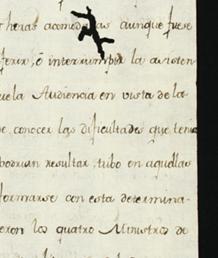 heras acomodadas aunque fuese
ferir, é interrumpir la asisten
uela Audiencia en vista de la
e, conocer las dificultades que tenia
bodrian resultar, tubo en aquellas
formarse con esta determina-
eron los quatro Ministros de